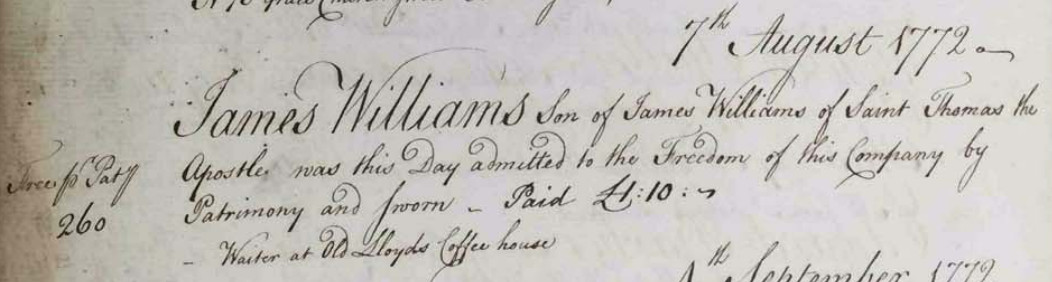 7th August 1772
James Williams Son of James Williams of Saint Thomas the
Free pr Paty Apostle was this Day admitted to the Freedom of this Company by
260 Patrimony and sworn – Paid £1:10:~
– Waiter at Old Lloyds Coffee house
September 1772